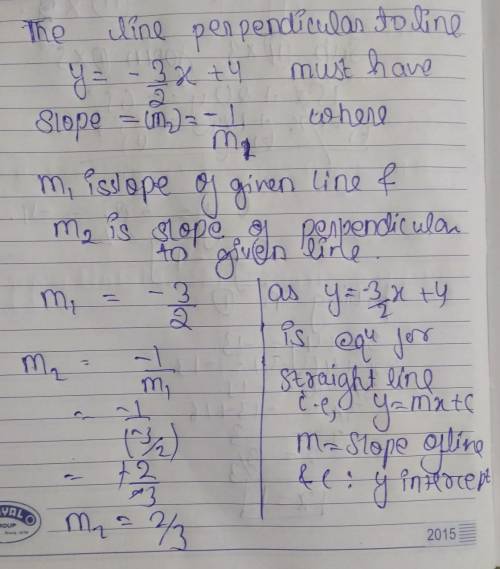 The line perpendicular to line
y = -3/2 x + 4 must have
slope = (m2) = -1/m1 where
m1 is slope of given line &
m2 is slope of perpendicular
to given line.
m1 = -3/2
m2 = -1/m1
= -1/(-3/2)
= +2/-3
m2 = 2/3
as y = -3/2 x + 4
is equ for
straight line
i.e, y = mx + c
m = slope of line
& c : y intercept
YAL
GROUP
2015